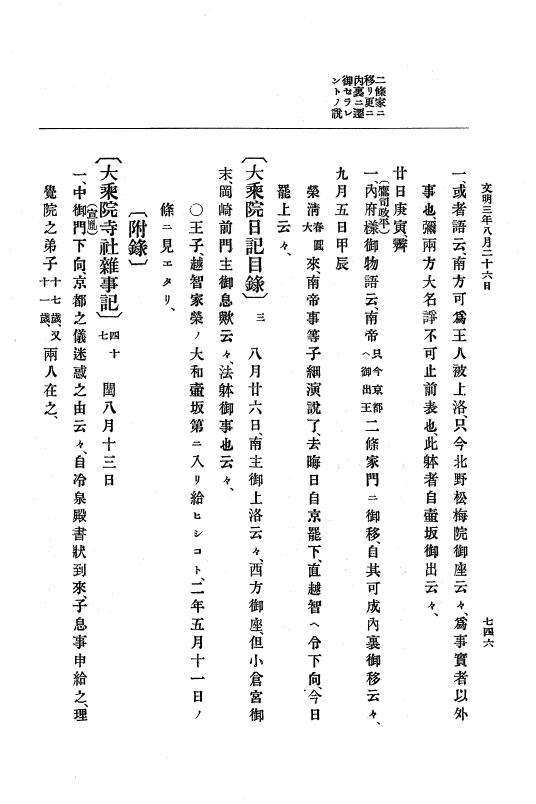 二條家ニ
移リ更ニ
內裏ニ遷
御セラレ
ントノ說
文明三年八月二十六日
七四六
一、或者語云、南方可爲王人被上洛、只今北野松梅院御座云々、爲事實者以外
事也、彌兩方大名諍不可止前表也、此躰者自壺坂御出云々、
廿日庚寅、霽
一、內府樣(鷹司政平)御物語云、南帝只今京都ヘ御出王二條家門ニ御移、自其可成內裏御移云々、
九月五日甲辰
榮淸春圓大來、南帝事等子細演說了、去晦日自京罷下、直越智ヘ令下向、今日
罷上云々、
〔大乘院日記目錄〕三 八月廿六日、南主御上洛云々、西方御座、但小倉宮御
末、岡崎前門主御息歟云々、法躰御事也云々、
○王子、越智家榮ノ大和壺坂第ニ入リ給ヒシコト、二年五月十一日ノ
條ニ見エタリ、
〔附錄〕
〔大乘院寺社雜事記〕四十七 閏八月十三日
一、中御門(宣胤)下向、京都之儀迷惑之由云々、自冷泉殿書狀到來、子息事申給之、理
覺院之弟子十七歲、又十一歲、兩人在之、